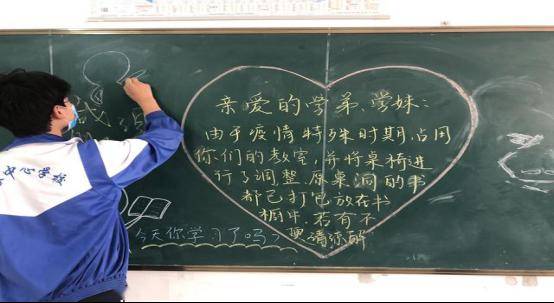 亲爱的学弟、学妹:
由于疫情特殊时期,占用
你们的教室,并将桌椅进
行了调整,原桌洞的书
都已打包放在书
棚中,若有不
便请谅解
今天你学习了吗?
战
中心学校